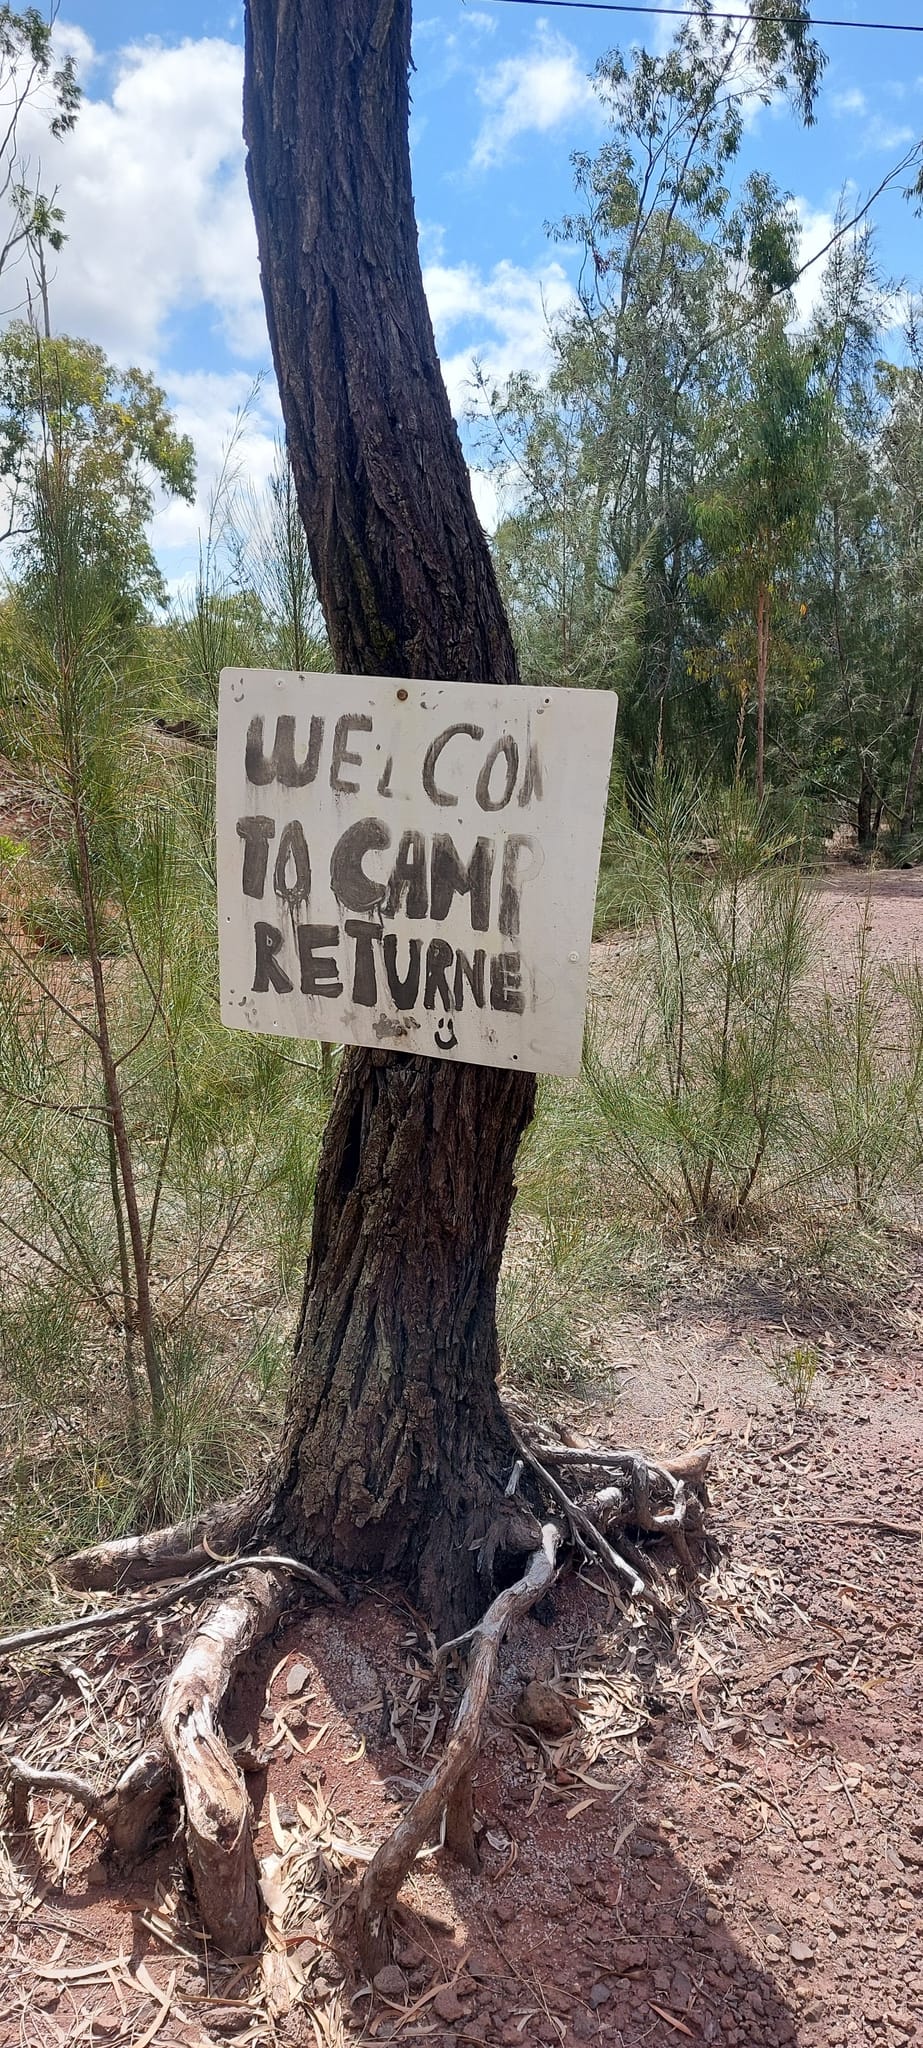 WELCOM
TO CAMP
RETURNE